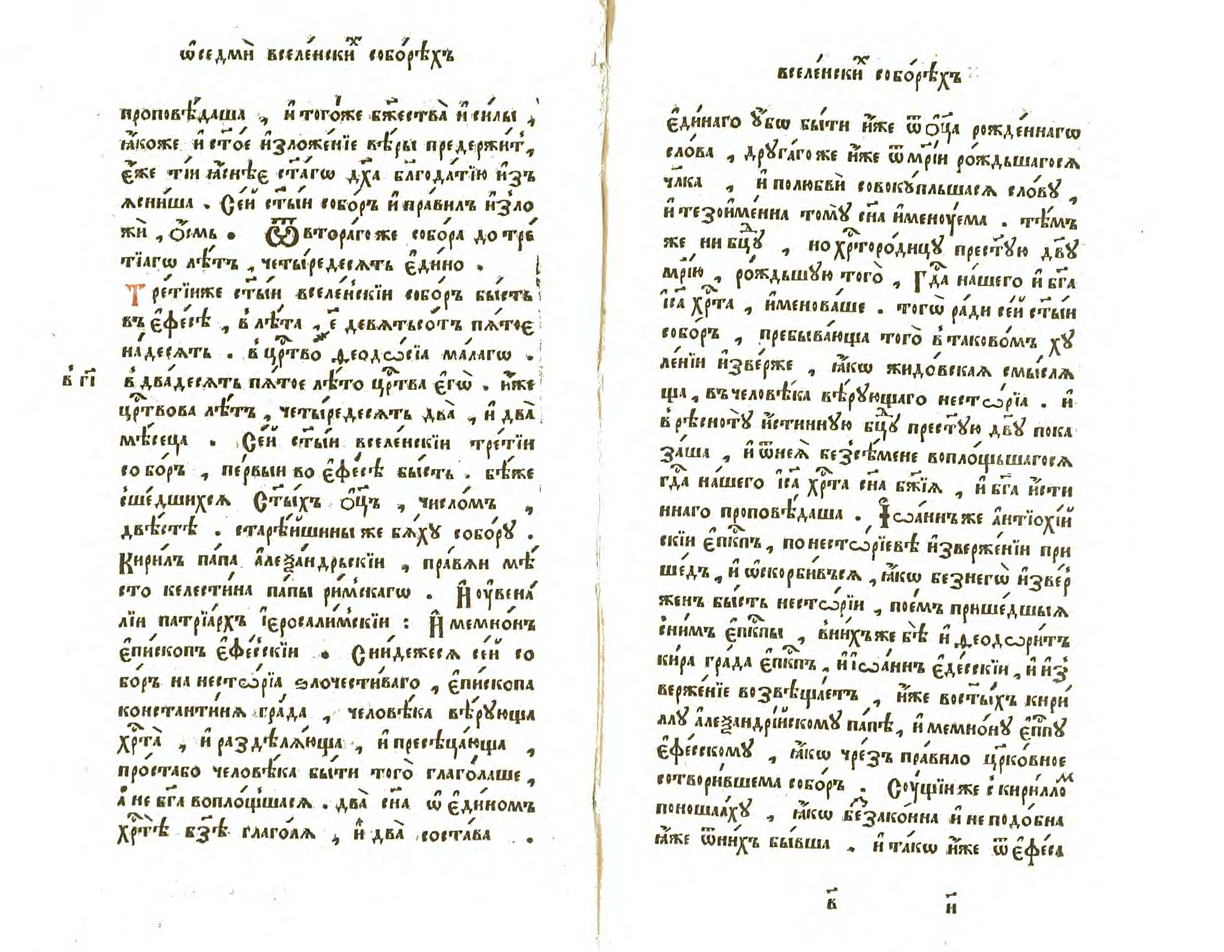 ѡ҆седмѝ вселе́нски́хъ собо́рѣхъ
проповѣ́даша , и҆ тогѡ́же бж҃ества̀ и҆ си́лы ,
ꙗ҆́коже и҆ ст҃о́е и҆зложе́нїе вѣ́ры предержи́тъ ,
є҆́же ті́и ꙗ҆снѣ́е ст҃а́гѡ дх҃а благода́тїю и҆зъ
ясни́ша . Се́й ст҃ы́и собо́ръ и҆ пра́вилъ и҆зло
жѝ , ѻ҆́смь . Ѿ втора́гоже собо́ра до тре́
тїагѡ лѣ́тъ , четы́редесять є҆ди́но .
Тре́тїиже ст҃ы́и вселе́нскїи собо́ръ бы́сть
въ є҆фе́сѣ , в лѣ́та , ҂є҃ девятьсо́тъ пя́тое
на́десять . в цр҃тво ѳеодѡ́сїа ма́лагѡ .
в҃ гі҃
в два́десять пя́тое лѣ́то цр҃тва є҆гѡ̀ . и҆́же
цр҃твова лѣ́тъ , четы́редесять два̀ , и҆ два̀
мѣ́сеца . Се́й ст҃ы́и вселе́нскїи тре́тїи
собо́ръ , пе́рвыи во є҆фе́сѣ бы́сть . бѣ́же
сше́дшихся Ст҃ы́хъ ѻ҆ц҃ъ , число́мъ ,
двѣ́стѣ . старѣ́йшины же бя́хꙋ собо́рꙋ .
Кири́лъ па́па а҆леѯа́ндрьскїи , пра́вяи мѣ́
сто келести́на па́пы ри́мскагѡ . И҆ ꙋ҆вена́
лїи патрїа́рхъ і҆еросали́мскїи : И҆ мемно́нъ
є҆пи́скопъ є҆фе́сскїи . Сни́дежеся се́й со
бо́ръ на несто́рїа ѕлочести́ваго , є҆пи́скопа
константи́ня гра́да , человѣ́ка вѣ́рꙋюща
хр҃та̀ , и҆ раздѣля́юща , и҆ пресѣца́юща ,
про́стабо человѣ́ка бы́ти того̀ глаго́лаше ,
а҆ не бг҃а воплощшася . два̀ сн҃а ѡ҆ є҆ди́номъ
хр҃тѣ̀ бз҃ѣ глаго́ля , и҆ два̀ соста́ва .
вселе́нски́хъ собо́рѣхъ
є҆ди́наго ᲂу҆́бѡ бы́ти и҆́же ѿ ѻ҆ц҃а рожде́ннагѡ
сло́ва , дрꙋга́гоже и҆́же ѿ мр҃їи ро́ждьшагося
чл҃ка , и҆ по любвѝ совокꙋ́пльшася сло́вꙋ ,
и҆ тезоиме́нна томꙋ̀ сн҃а и҆менꙋ́ема . тѣ́мъ
же ни бц҃ꙋ , но хр҃торо́дицꙋ прест҃ꙋю дв҃ꙋ
мр҃їю , ро́ждьшꙋю того̀ , Гд҃а на́шего и҆ бг҃а
і҆с҃а хр҃та , и҆менова́ше . тогѡ̀ ра́ди се́й ст҃ы́и
собо́ръ , пребыва́юща того̀ в такова́мъ хꙋ
ле́нїи и҆зве́рже , ꙗ҆́кѡ жидо́вская смы́сля
ща , въ человѣ́ка вѣ́рꙋющаго несто́рїа . и҆
в рѣсно́тꙋ и҆́стиннꙋю бц҃ꙋ прест҃ꙋю дв҃ꙋ пока
за́ша , и҆ ѿ нея̀ безсѣ́мене воплощьшагося
гд҃а на́шего і҆с҃а хр҃та сн҃а бж҃їя , и҆ бг҃а и҆́сти
ннаго проповѣ́даша . І҆ѡа́ннъже а҆нтїохі́й
скїи є҆пк҃пъ , по несто́рїевѣ и҆зверже́нїи при
ше́дъ , и҆ ѡ҆скорби́вься , ꙗ҆́кѡ без негѡ̀ и҆зве́р
женъ бы́сть несто́рїи , пое́мъ прише́дшыя
сни́мъ є҆пк҃пы , в ни́хъже бѣ̀ и҆ ѳеодѡри́тъ
ки́ра гра́да є҆пк҃пъ , и҆ і҆ѡа́ннъ є҆де́сскїи , и҆ и҆з
верже́нїе возвѣща́етъ , и҆́же во ст҃ы́хъ кири́
ллꙋ а҆леѯандрі́йскомꙋ па́пѣ , и҆ мемно́нꙋ є҆пп҃ꙋ
є҆фе́сскомꙋ , ꙗ҆́кѡ чре́зъ пра́вило цр҃ко́вное
сотвори́вшема собо́ръ . Сꙋ́щїиже с кири́лломъ
поноша́ахꙋ , ꙗ҆́кѡ без̾зако́нна и҆ не подо́бна
ꙗ҆́же ѿ ни́хъ бы́вша . и҆ та́кѡ и҆́же ѿ є҆фе́са
в҃ и҃